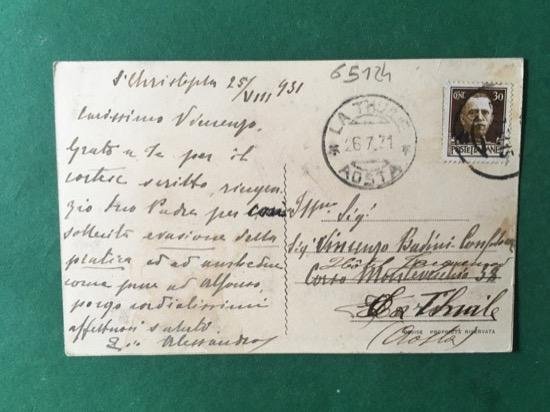 65124
S. Christophe 25/VIII 931
Carissimo Vincenzo,
Grato a Te per il
cortese scritto, ringra-
zio tuo Padre per
sollecita evasione della
pratica ed ad
come pure ad Alfonso,
porgo cordialissimi
affettuosi saluti.
Alessandro
LA THUILE
26.7.31
AOSTA
CENT. 30
POSTE ITALIANE
Ill.mo Sig.
Sig. Vincenzo Badini Confalonieri
Hôtel
Corso Montevecchio 38
La Thuile
(Aosta)
PROPRIETÀ RISERVATA